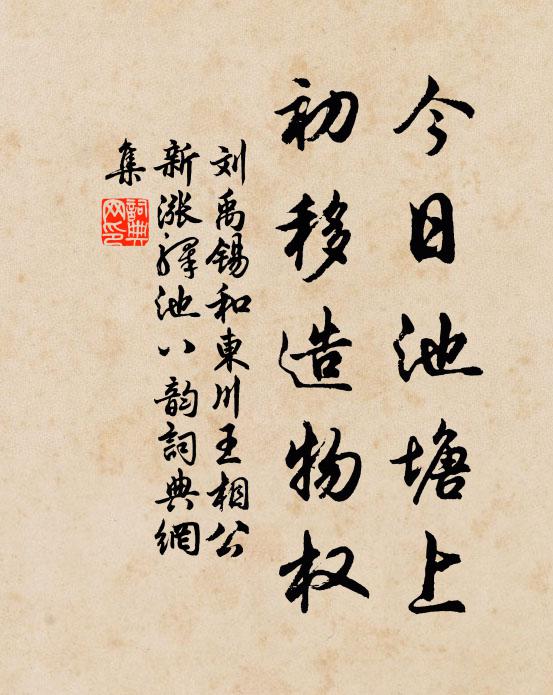 今日池塘上
初移造物权
刘禹锡和東川王相公
新涨驿池八韵詞典網
集
詞典
网印